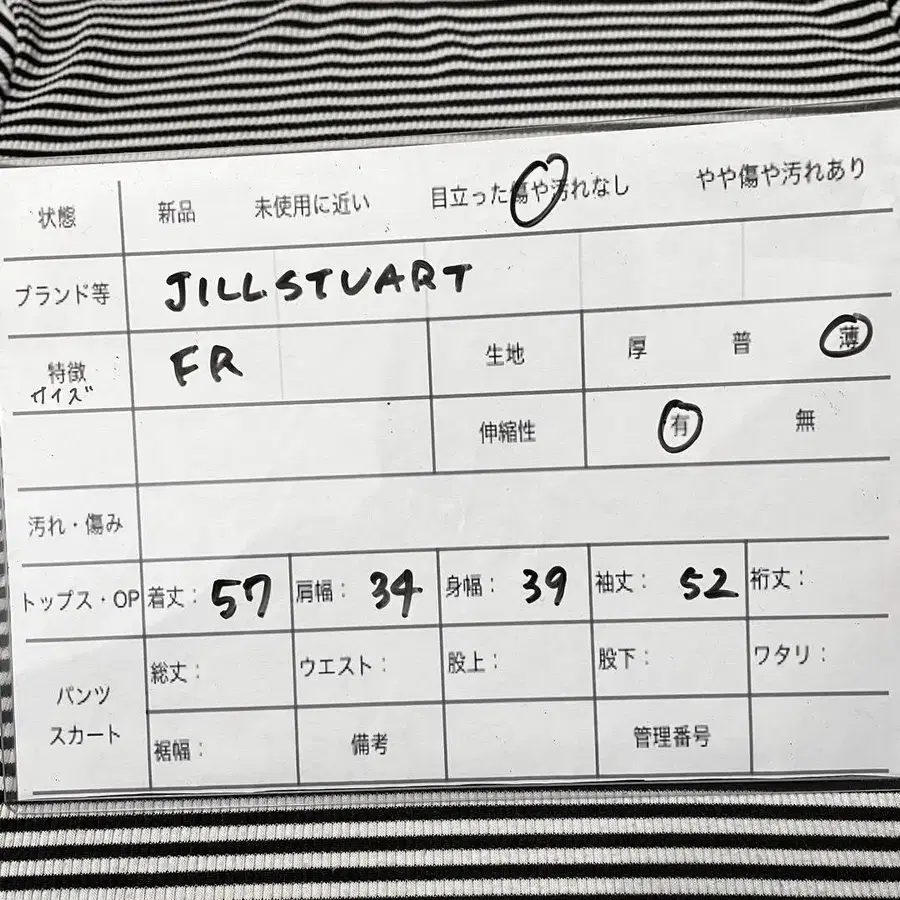 状態 新品 未使用に近い 目立った傷や汚れなし やや傷や汚れあり
ブランド等 JILL STUART
特徴 FR 生地 厚 普 薄
サイズ
伸縮性 有 無
汚れ・傷み
トップス・OP 着丈: 57 肩幅: 34 身幅: 39 袖丈: 52 裄丈:
パンツ 総丈: ウエスト: 股上: 股下: ワタリ:
スカート 裾幅: 備考 管理番号